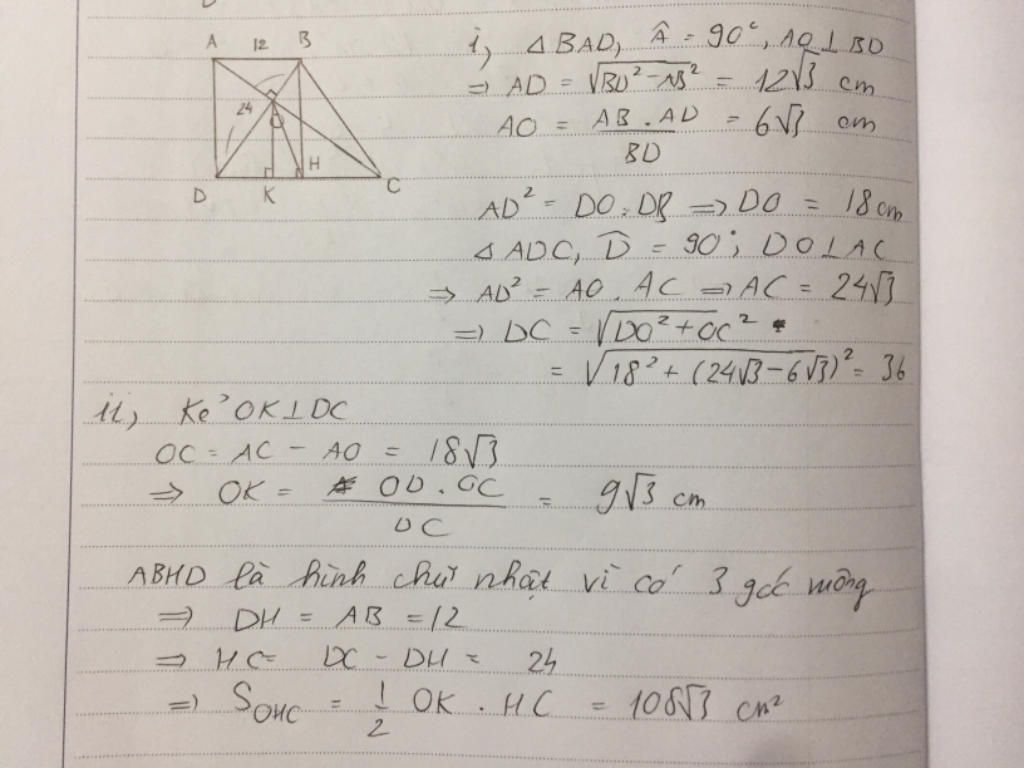 A 12 B
24
O
H
D K C
i, △BAD, Â = 90°, AO ⊥ BD
⇒ AD = √(BD² - AB²) = 12√3 cm
AO = AB . AD / BD = 6√3 cm
AD² = DO . DB ⇒ DO = 18cm
△ADC, D̂ = 90°; DO ⊥ AC
⇒ AD² = AO . AC ⇒ AC = 24√3
⇒ DC = √(DO² + OC²)
= √(18² + (24√3 - 6√3)²) = 36
ii, Kẻ OK ⊥ DC
OC = AC - AO = 18√3
⇒ OK = OD . OC / DC = 9√3 cm
ABHD là hình chữ nhật vì có 3 góc vuông
⇒ DH = AB = 12
⇒ HC = DC - DH = 24
⇒ S_OHC = 1/2 OK . HC = 108√3 cm²